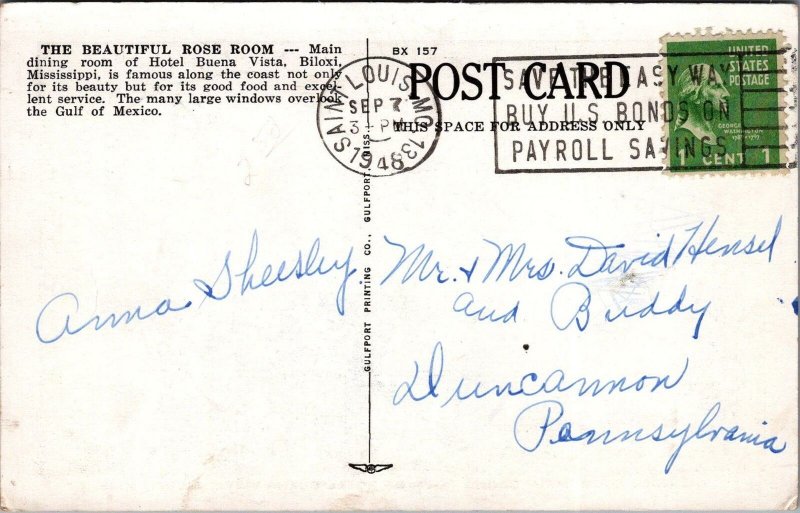 THE BEAUTIFUL ROSE ROOM --- Main
dining room of Hotel Buena Vista, Biloxi,
Mississippi, is famous along the coast not only
for its beauty but for its good food and excel-
lent service. The many large windows overlook
the Gulf of Mexico.
BX 157
POST CARD
THIS SPACE FOR ADDRESS ONLY
SAINT LOUIS, MO. 13
SEP 7
3 - PM
1948
SAVE THE EASY WAY
BUY U.S. BONDS ON
PAYROLL SAVINGS
UNITED
STATES
POSTAGE
GEORGE
WASHINGTON
1 CENT 1
GULFPORT PRINTING CO., GULFPORT, MISS.
Anna Sheesley
Mr. & Mrs. David Hensel
and Buddy
Duncannon
Pennsylvania